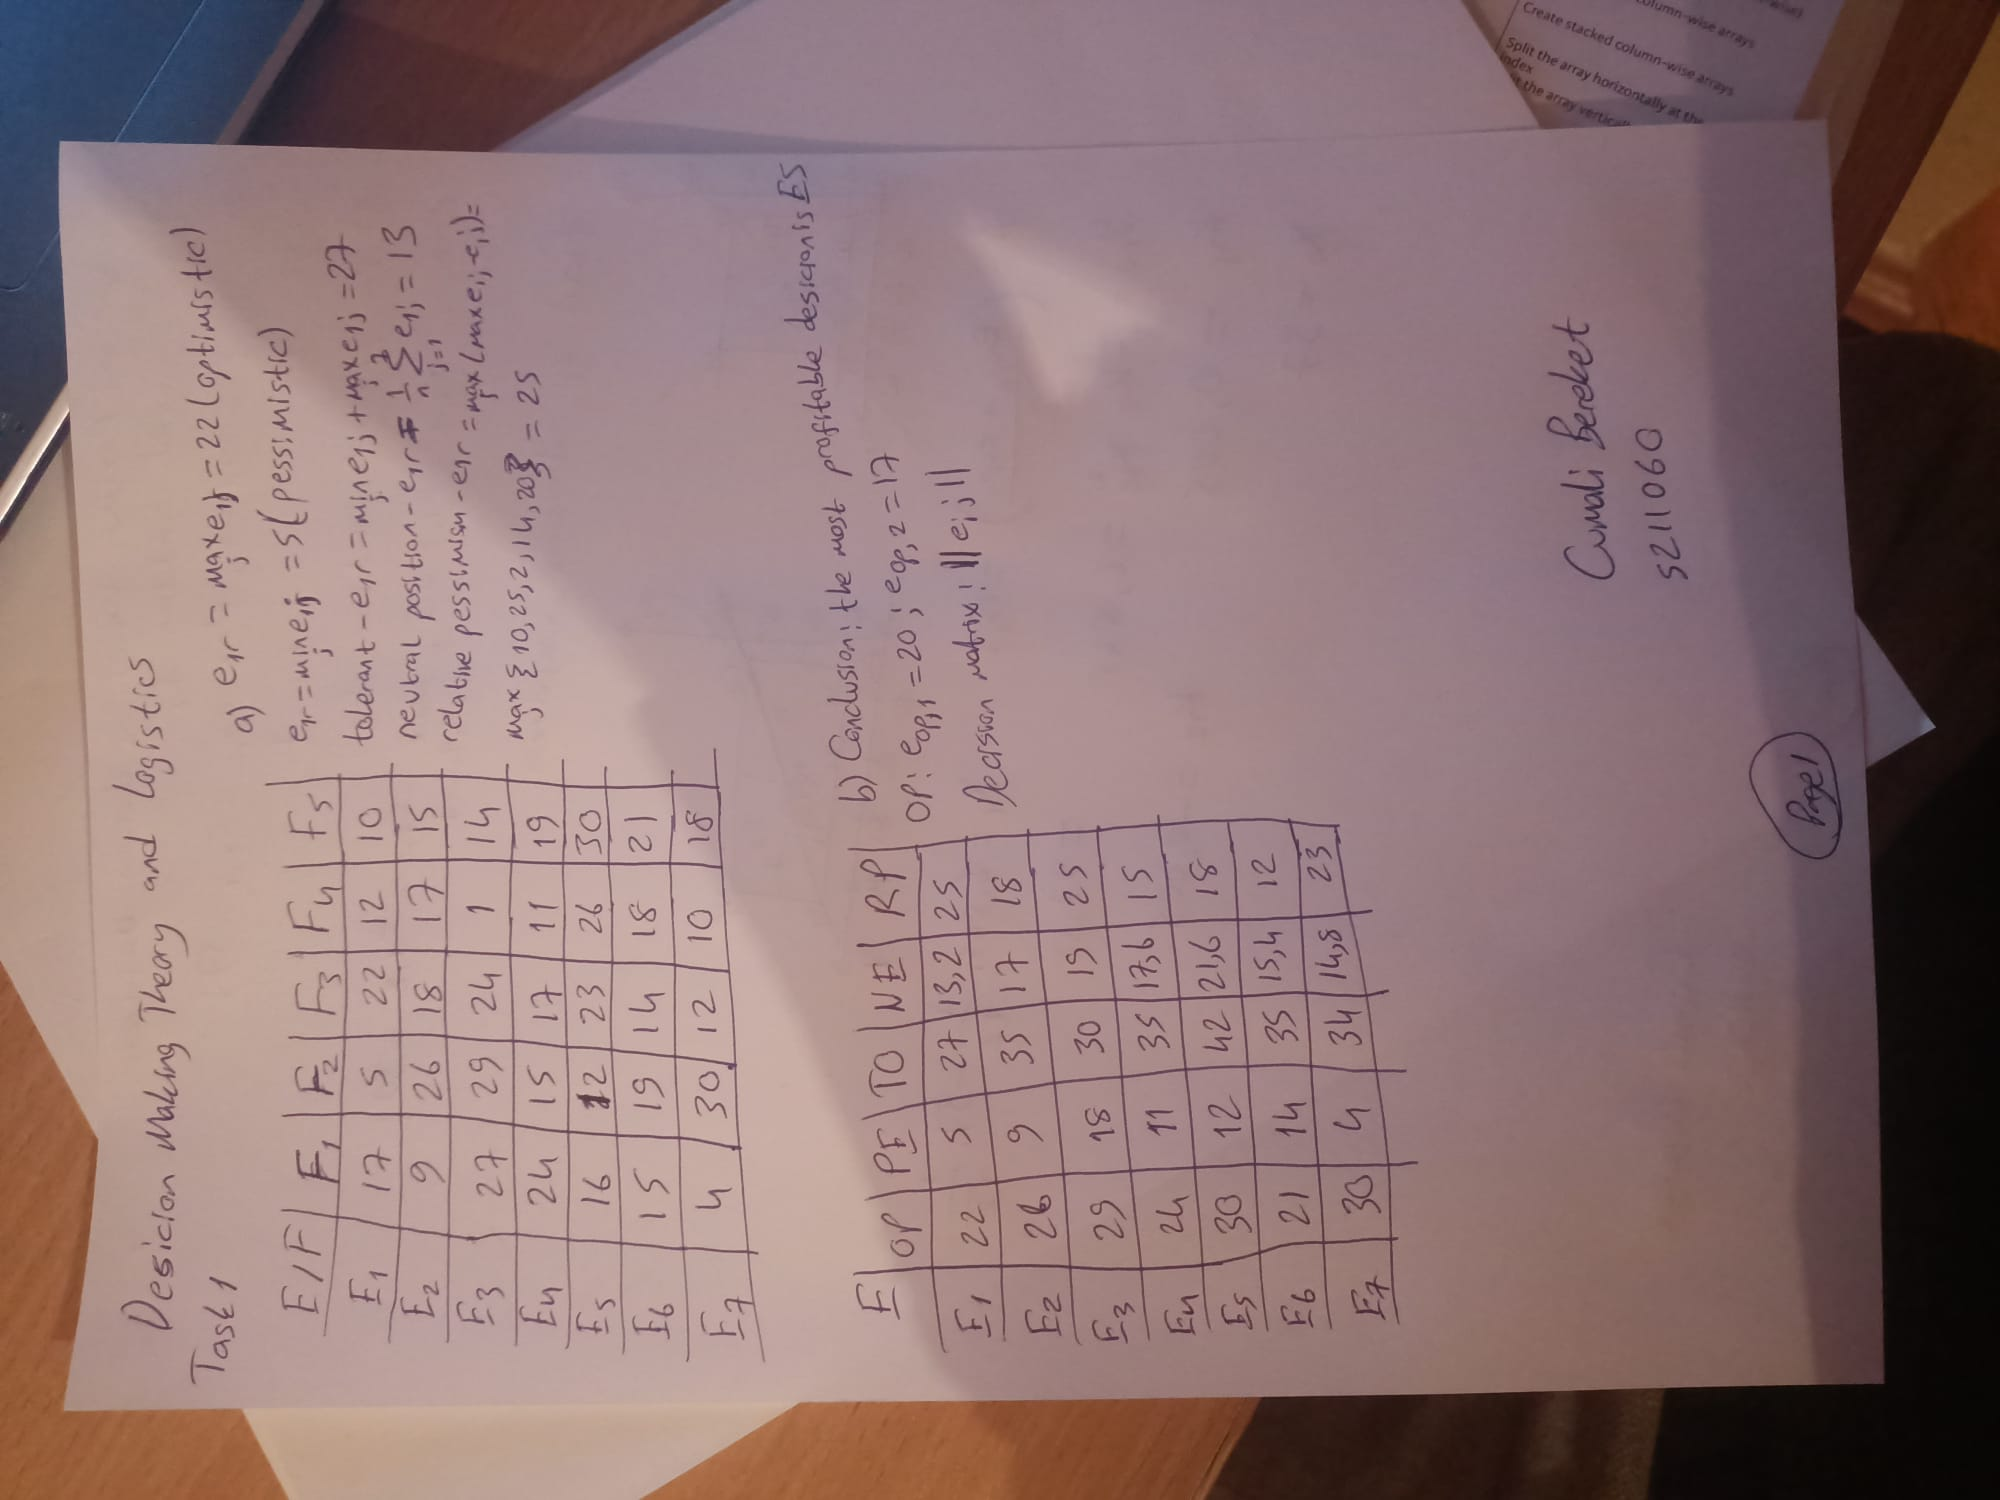 Desicion Making Theory and Logistics
Task 1
E/F F1 F2 F3 F4 F5
E1 17 5 22 12 10
E2 9 26 18 17 15
E3 27 29 24 1 14
E4 24 15 17 11 19
E5 16 12 23 26 30
E6 15 19 14 18 21
E7 4 30 12 10 18
a) e1r = max e1j = 22 (optimistic)
j
e1r = min e1j = 5 (pessimistic)
j
tolerant - e1r = min e1j + max e1j = 27
j j
neutral position - e1r = 1/n 7Σj=1 e1j = 13
relative pessimism - e1r = max (max eij - eij) =
j
max {10, 25, 2, 14, 20} = 25
j
E OP PE TO NE RP
E1 22 5 27 13,2 25
E2 26 9 35 17 18
E3 29 18 30 19 25
E4 24 11 35 17,6 15
E5 30 12 42 21,6 18
E6 21 14 35 15,4 12
E7 30 4 34 14,8 23
b) Conclusion: the most profitable desicion is E5
OP: eop,1 = 20; eop,2 = 17
Decision matrix: ||eij||
Cumali Bereket
5211060
Page1
Create stacked column-wise arrays
Split the array horizontally at the
index
column-wise arrays
the array